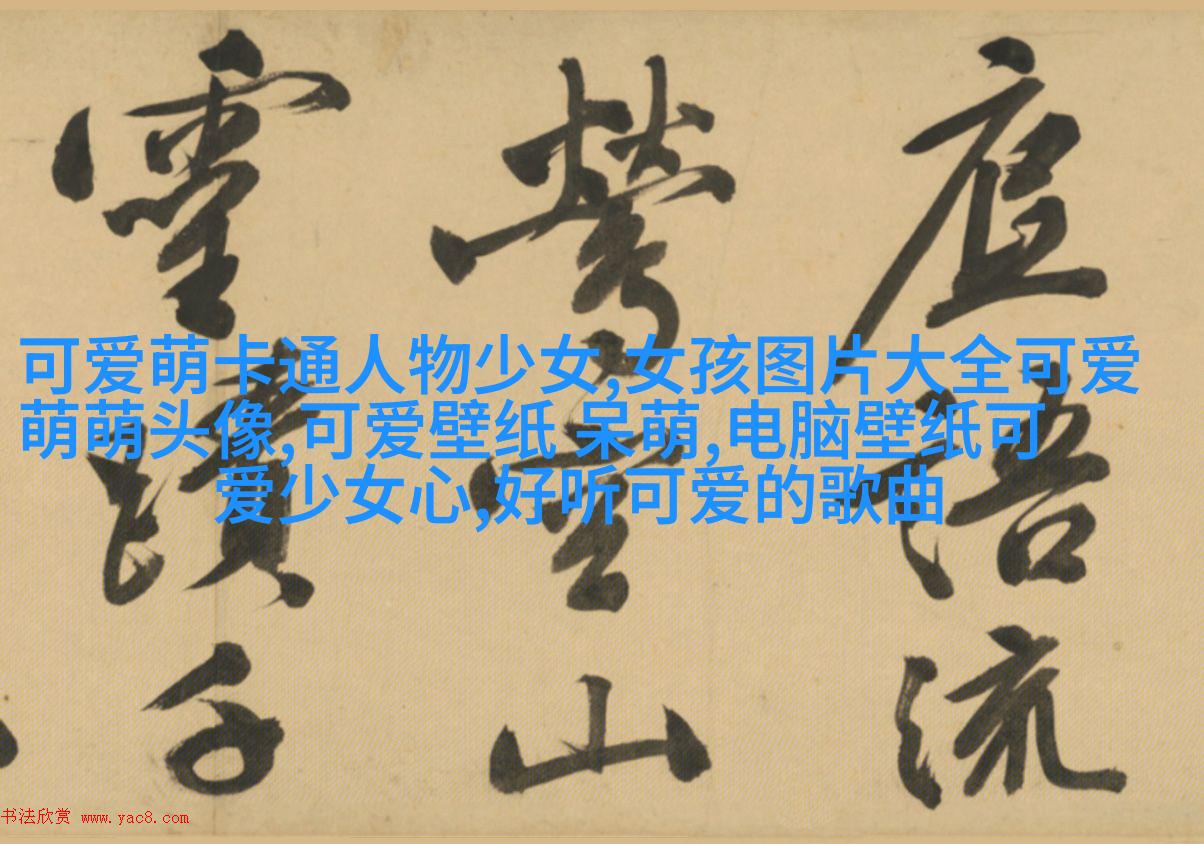 語流
鶯山
千
可爱萌卡通人物少女,女孩图片大全可爱
萌萌头像,可爱壁纸 呆萌,电脑壁纸可
爱少女心,好听可爱的歌曲
书法欣赏 www.yac8.com